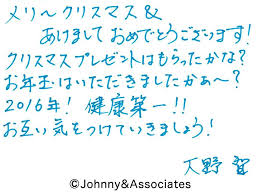 メリ〜クリスマス&
あけまして おめでとうございます!
クリスマスプレゼントはもらったかな?
お年玉はいただきましたかぁ〜?
2016年! 健康第一!!
お互い気をつけていきましょう!
大野 智
©Johnny&Associates